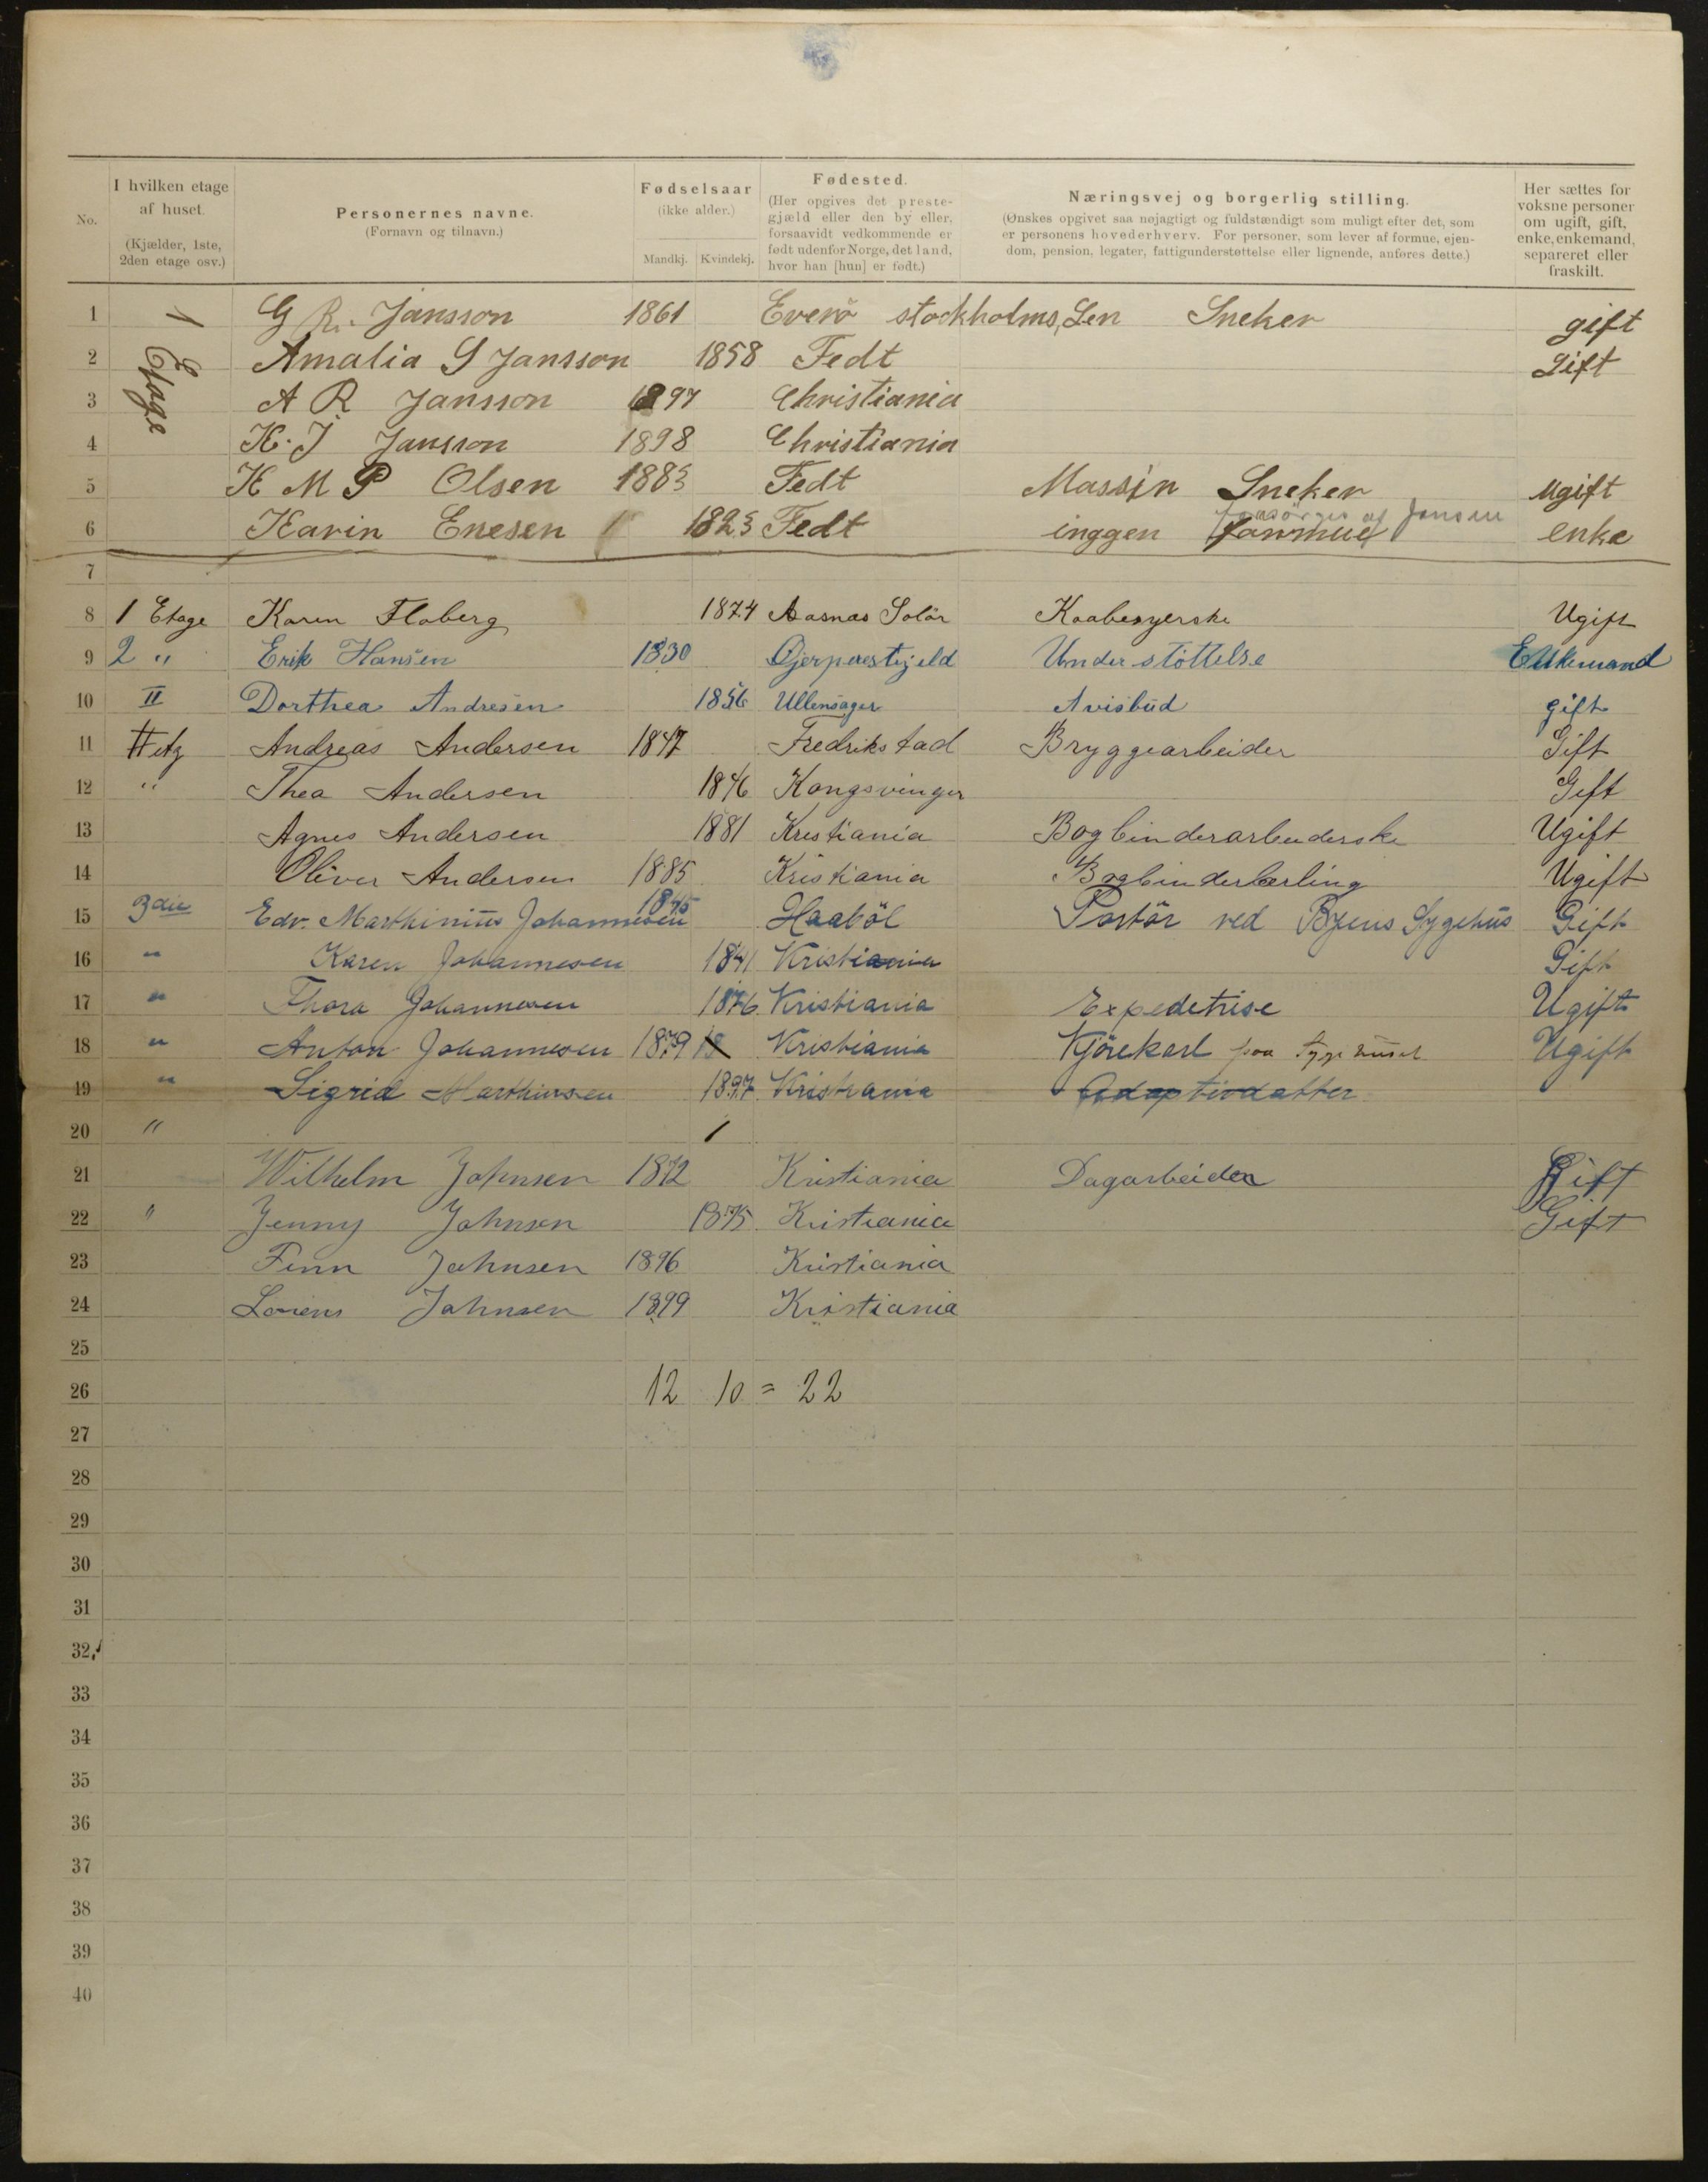 No. I hvilken etage af huset. (Kjælder, 1ste, 2den etage osv.) Personernes navne. (Fornavn og tilnavn.) Fødselsaar (ikke alder.) Mandkj. Kvindekj. Fødested. (Her opgives det prestegjæld eller den by eller, forsaavidt vedkommende er født udenfor Norge, det land, hvor han [hun] er født.) Næringsvej og borgerlig stilling. (Ønskes opgivet saa nøjagtigt og fuldstændigt som muligt efter det, som er personens hovederhverv. For personer, som lever af formue, ejendom, pension, legater, fattigunderstøttelse eller lignende, anføres dette.) Her sættes for voksne personer om ugift, gift, enke, enkemand, separeret eller fraskilt.
1 1 Etage G R. Jansson 1861 Everö stockholms Len Sneker gift
2 Amalia S Jansson 1858 Fedt Gift
3 A R Jansson 1897 Christiania
4 K. J Jansson 1898 Christiania
5 K M P Olsen 1883 Fedt Massin Sneker Ugift
6 Karin Enesen 1823 Fedt inggen formue forsörges af Jansen enke
7
8 1 Etage Karen Floberg 1874 Aasnas Solör Kaabesyerske Ugift
9 2 " Erik Hansen 1830 Gjerperestgjeld Understöttelse Enkemand
10 II Dorthea Andresen 1856 Ullensager Avisbud gift
11 II etg Andreas Andersen 1847 Fredrikstad Bryggearbeider Gift
12 " Thea Andersen 1846 Kongsvinger Gift
13 Agnes Andersen 1881 Kristiania Bogbinderarbeiderske Ugift
14 Oliver Andersen 1885 Kristiania Bogbinderlærling Ugift
15 3die Edv. Marthinius Johannesen 1845 Haaböl Portör ved Byens Sygehus Gift
16 " Karen Johannesen 1841 Kristiania Gift
17 " Thora Johannesen 1876 Kristiania Expedetrise Ugift
18 " Anton Johannesen 1879 18 Kristiania Kjörekarl paa Sygehuset Ugift
19 " Sigrid Marthinsen 1897 Kristiania Adoptivdatter
20 "
21 Wilhelm Johnsen 1872 Kristiania Dagarbeider Gift
22 " Jenny Johnsen 1875 Kristiania Gift
23 Finn Johnsen 1896 Kristiania
24 Lorens Johnsen 1899 Kristiania
25
26 12 10 = 22
27
28
29
30
31
32
33
34
35
36
37
38
39
40